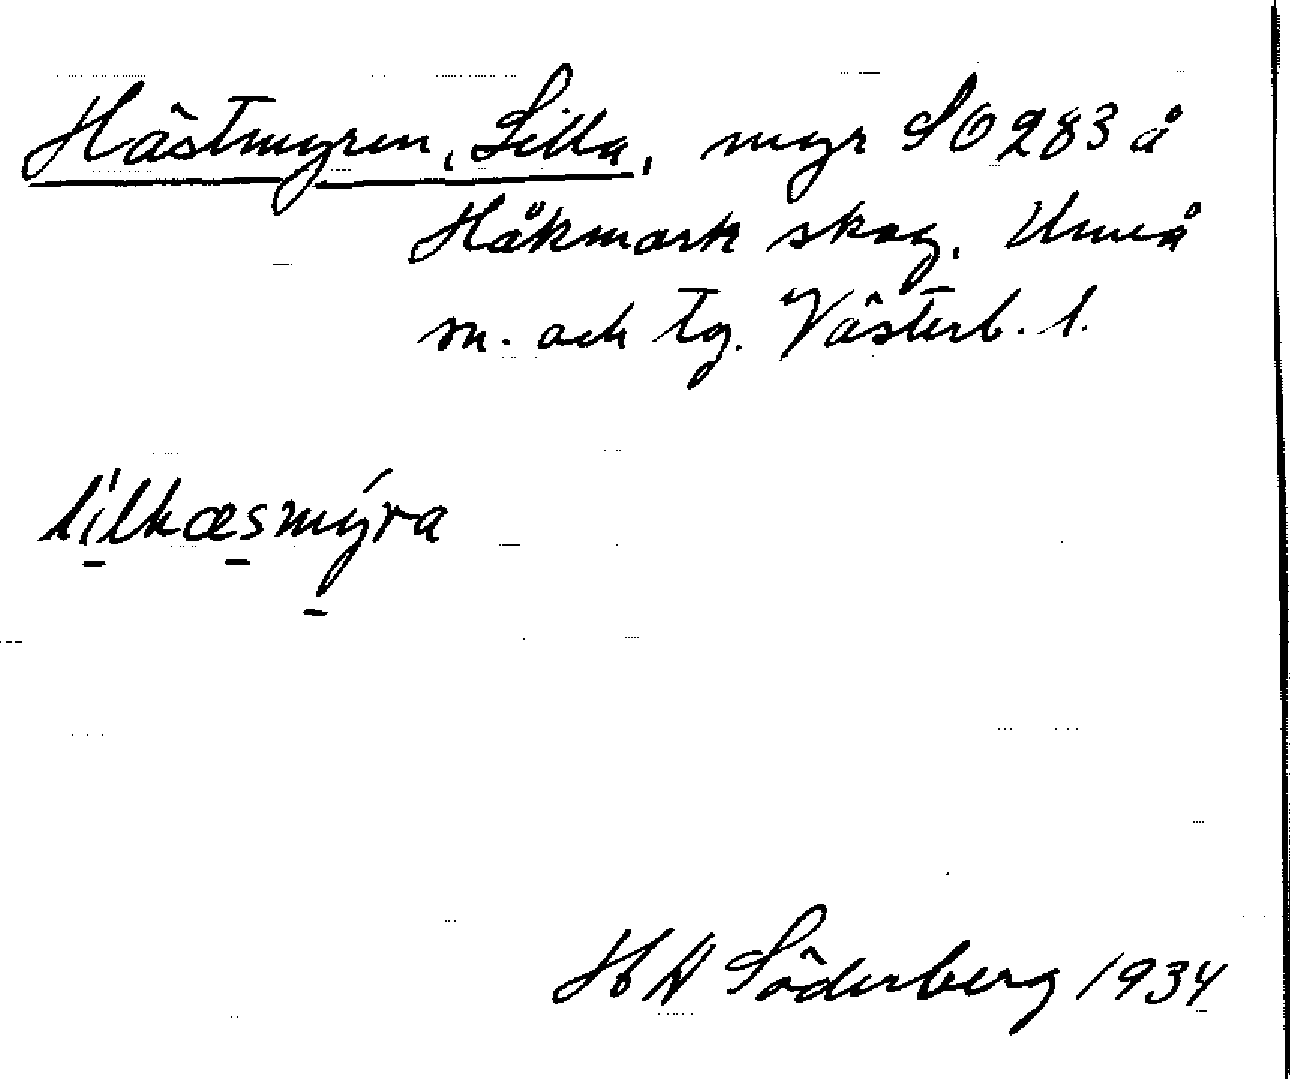 Hästmyren, Lilla, myr SO 283 å
Håkmark skog, Umeå
sn. och tg. Västerb. l.
li̱lhæ̱smý̱ra
H A Söderberg 1934